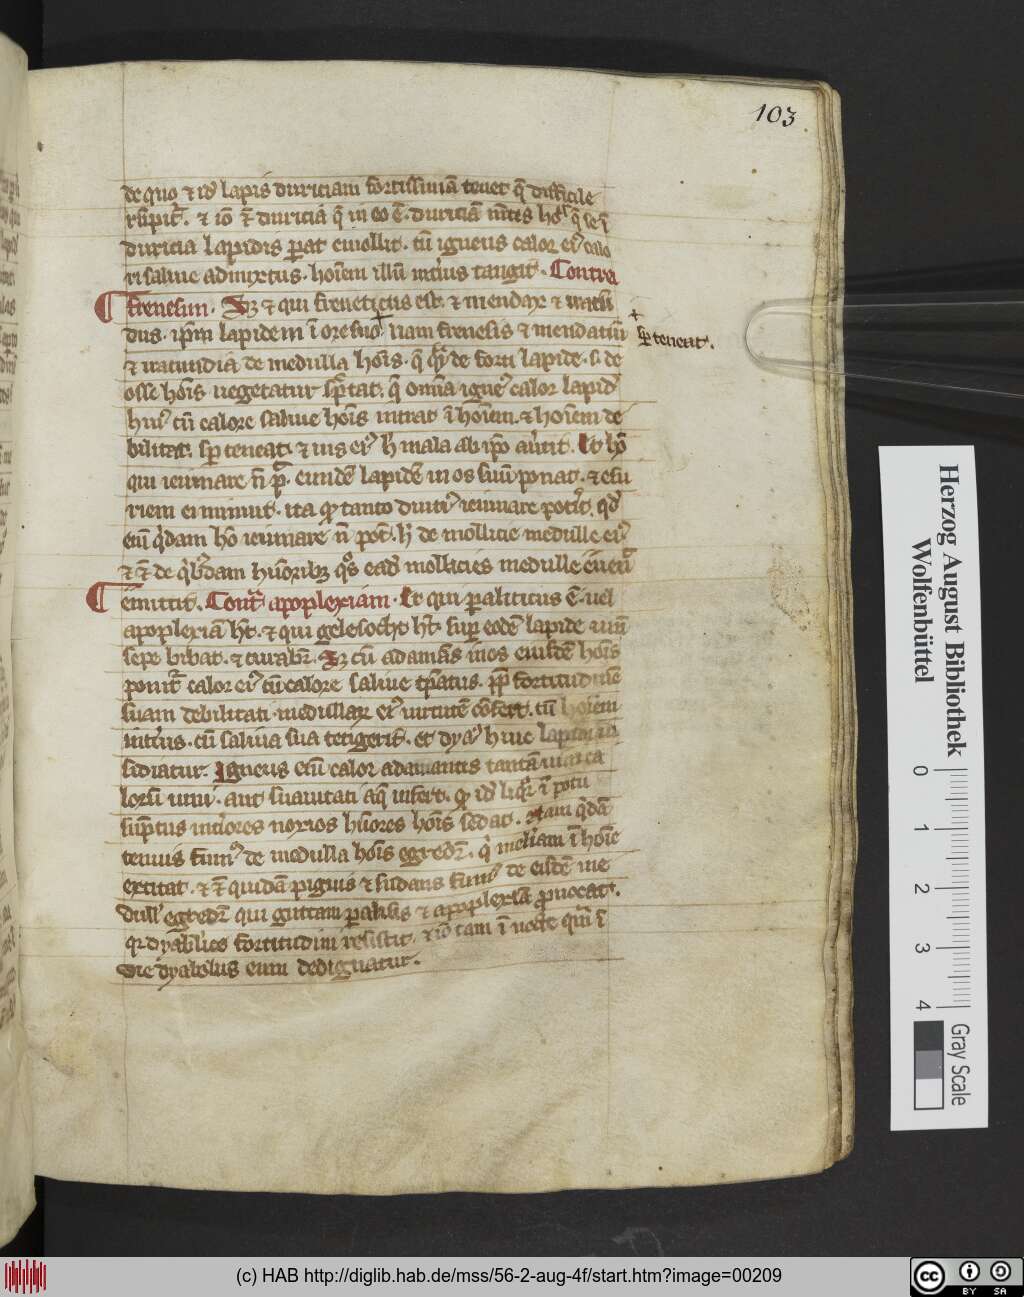 103
de quo ⁊ id lapis duriciam fortissimā tenet q̄ difficile
rūpit᷑. ⁊ iō ē duricia q̄ in eo ē. duriciā
duricia lapidis emollit. tū igneus calor ei᷒ calo
ri saliue admixtus. hoīem illū int̄ius tangit. Contra
frenesim. ⁊ qui freneticus est. ⁊ mendax ⁊ iracū
dus. ip̄m lapidem ī ore suo + nam frenesis ⁊ mendatiū
+
sp̄ teneat.
⁊ iracundia de medulla hoīs. de forti lapide. s. de
osse hoīs uegetatur calor lapid᷒
hui᷒ cū calore saliue hoīs intrat ī hoīem. ⁊ hoīem de
bilitat. sp̄ teneat. ⁊ uis ei᷒ h mala ab ip̄o au̓tit. Et hō
qui ieiunare n̄ p̄t. eundē lapidē in os suū ponat. ⁊ esu
riem ei minuit. ita q̄ tanto diuti᷒ ieiunare pot̓it. qd̓
eiū q̓dam hō ieiunare n̄ pōt. h̓ de mollicie medulle ei᷒
⁊ ē de q̓b᷒dam hūoribꝫ q̓s ead̓ mollicies medulle
emittit. Cont̄ apoplexiam. Et qui paliticus ē. uel
apoplexiā ht̄. ⁊ qui gelesocht ht̄. sup eodē lapide uinū
sepe bibat. ⁊ curabit᷑. cū adamās in os eiusdē hoīs
ponit᷑ calor ei᷒ cū calore saliue fortitudinē
suam debilitati medullaꝝ ei᷒ uirtutē cōfert. cū hoiem
int̓ius. cū saliua sua tetigerit. et dya᷒ huic lapidi in
sidiatur. Igneus eciū calor adamantis tantā
lorū uini. aut suauitati aq̄ infert. q̄ id liq᷑r ī potu
sūptus int̓iores noxios hūores hoīs sedat. Nam q̓dā
tenuis fum᷒ de medulla hoīs egredit᷑. q̓ meliam ī hoīe
excitat. ⁊ ē quidā piguis ⁊ sudans fum᷒ de eisdē me
dull᷒ egredit᷑ qui guttam paliſis ⁊ apoplexiā ꝓuocat.
fortitudini resistit. ⁊ iō tam ī nocte q̄m ī
die dyabolus eum dedignatur.
Herzog August Bibliothek
Wolfenbüttel
0 1 2 3 4
Gray Scale
(c) HAB http://diglib.hab.de/mss/56-2-aug-4f/start.htm?image=00209
cc BY SA